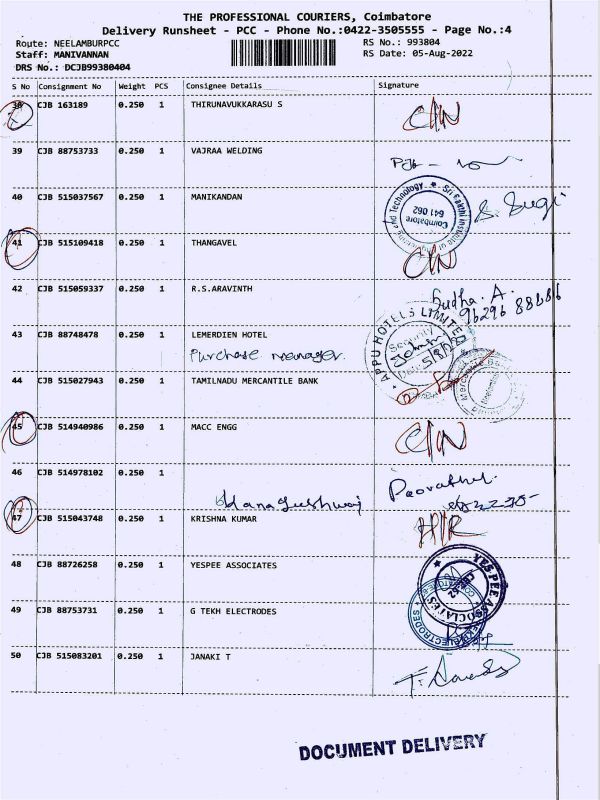 THE PROFESSIONAL COURIERS, Coimbatore
Delivery Runsheet - PCC - Phone No.:0422-3505555 - Page No.:4
Route: NEELAMBURPCC RS No.: 993804
Staff: MANIVANNAN RS Date: 05-Aug-2022
DRS No.: DCJB99380404
S No Consignment No Weight PCS Consignee Details Signature
38 CJB 163189 0.250 1 THIRUNAVUKKARASU S C/N
39 CJB 88753733 0.250 1 VAJRAA WELDING
40 CJB 515037567 0.250 1 MANIKANDAN S. Sugi
Coimbatore
641 062
41 CJB 515109418 0.250 1 THANGAVEL C/N
42 CJB 515059337 0.250 1 R.S.ARAVINTH Sudha. A.
96296 88686
43 CJB 88748478 0.250 1 LEMERDIEN HOTEL APPU HOTELS LIMITED
Purchase manager. Security
44 CJB 515027943 0.250 1 TAMILNADU MERCANTILE BANK
45 CJB 514940986 0.250 1 MACC ENGG C/N
46 CJB 514978102 0.250 1
47 CJB 515043748 0.250 1 KRISHNA KUMAR
48 CJB 88726258 0.250 1 YESPEE ASSOCIATES YES PEE ASSOCIATES
49 CJB 88753731 0.250 1 G TEKH ELECTRODES
50 CJB 515083201 0.250 1 JANAKI T
DOCUMENT DELIVERY